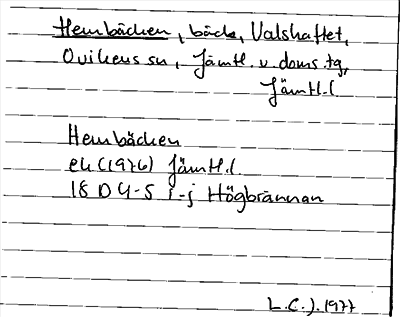 Hembäcken, bäck, Valshaftet,
Ovikens sn, Jämtl. v. doms.tg,
Jämtl.l
Hembäcken
ek (1976) Jämtl.l
18 D 4-5 i-j Högbrännan
L.C.J. 1977